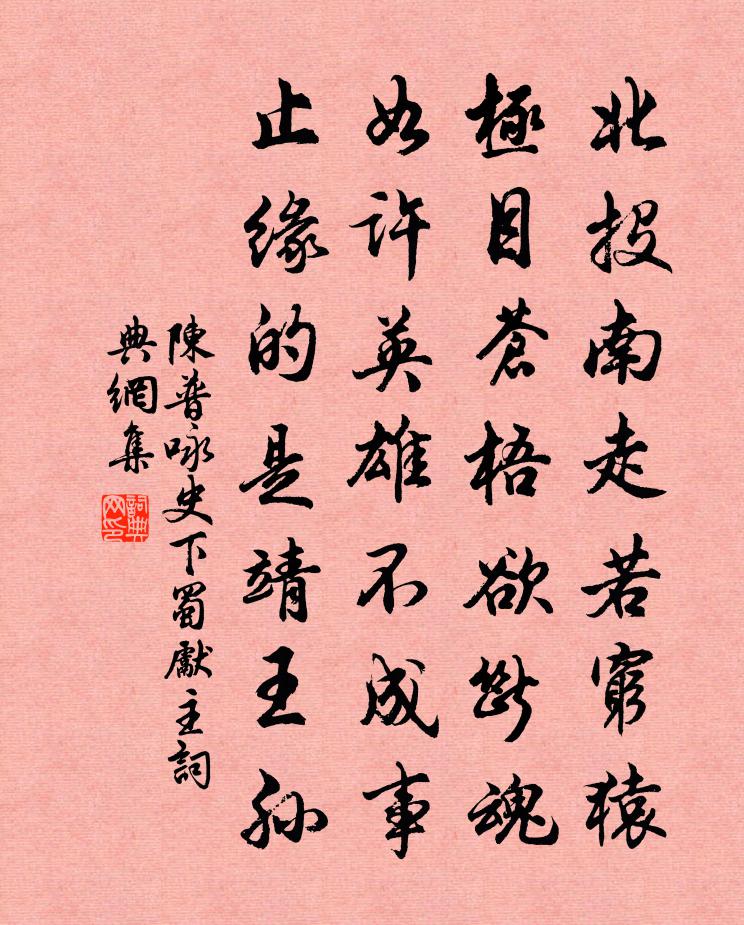 北投南走若窮猿
極目蒼梧欲斷魂
如許英雄不成事
止緣的是靖王孫
陳普咏史下蜀獻主詞
典網集
詞典
网印